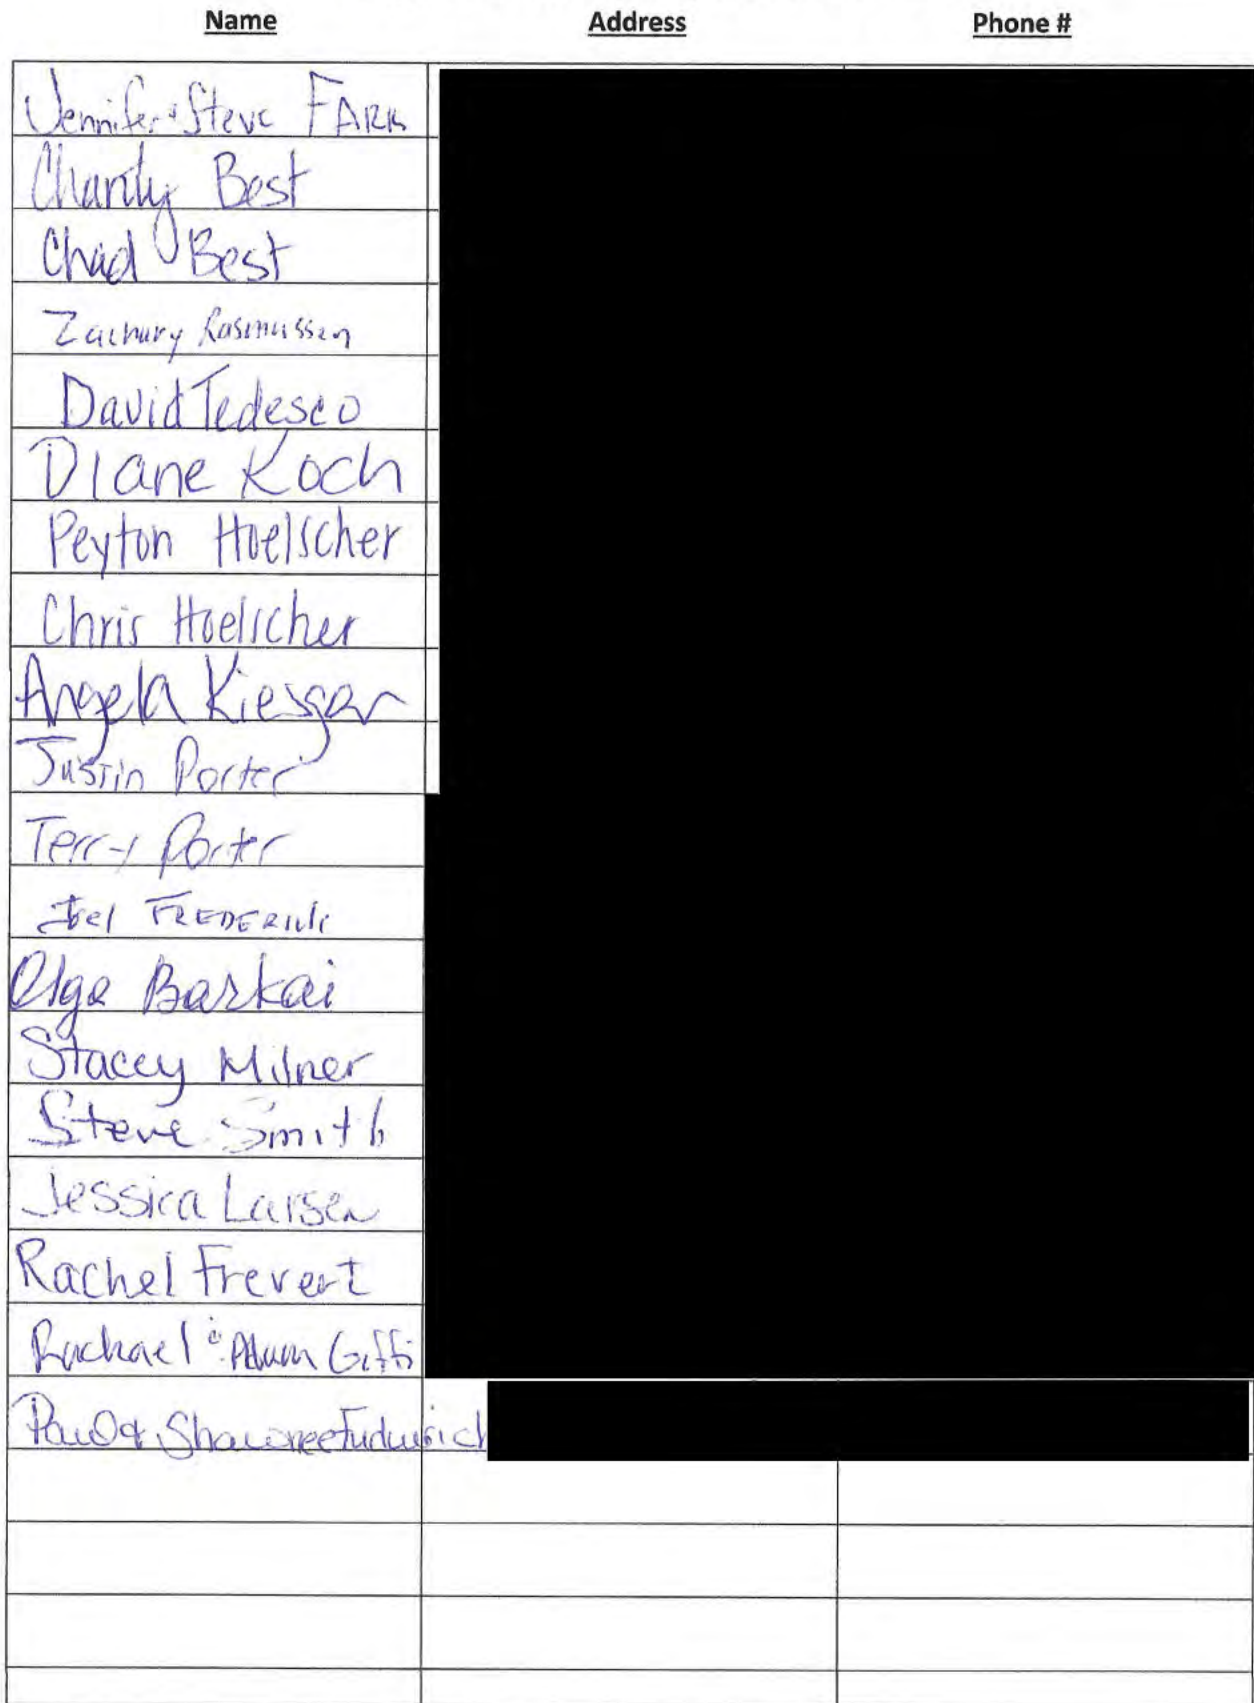 Name Address Phone #
Jennifer & Steve FARK
Charity Best
Chad Best
Zachary Rasmussen
David Tedesco
Diane Koch
Peyton Hoelscher
Chris Hoelscher
Angela Kiesgen
Justin Porter
Terry Porter
Joel FREDERICK
Olga Barkai
Stacey Milner
Steve Smith
Jessica Larsen
Rachel Frevert
Rachael & Adam
Paul & Shawnee